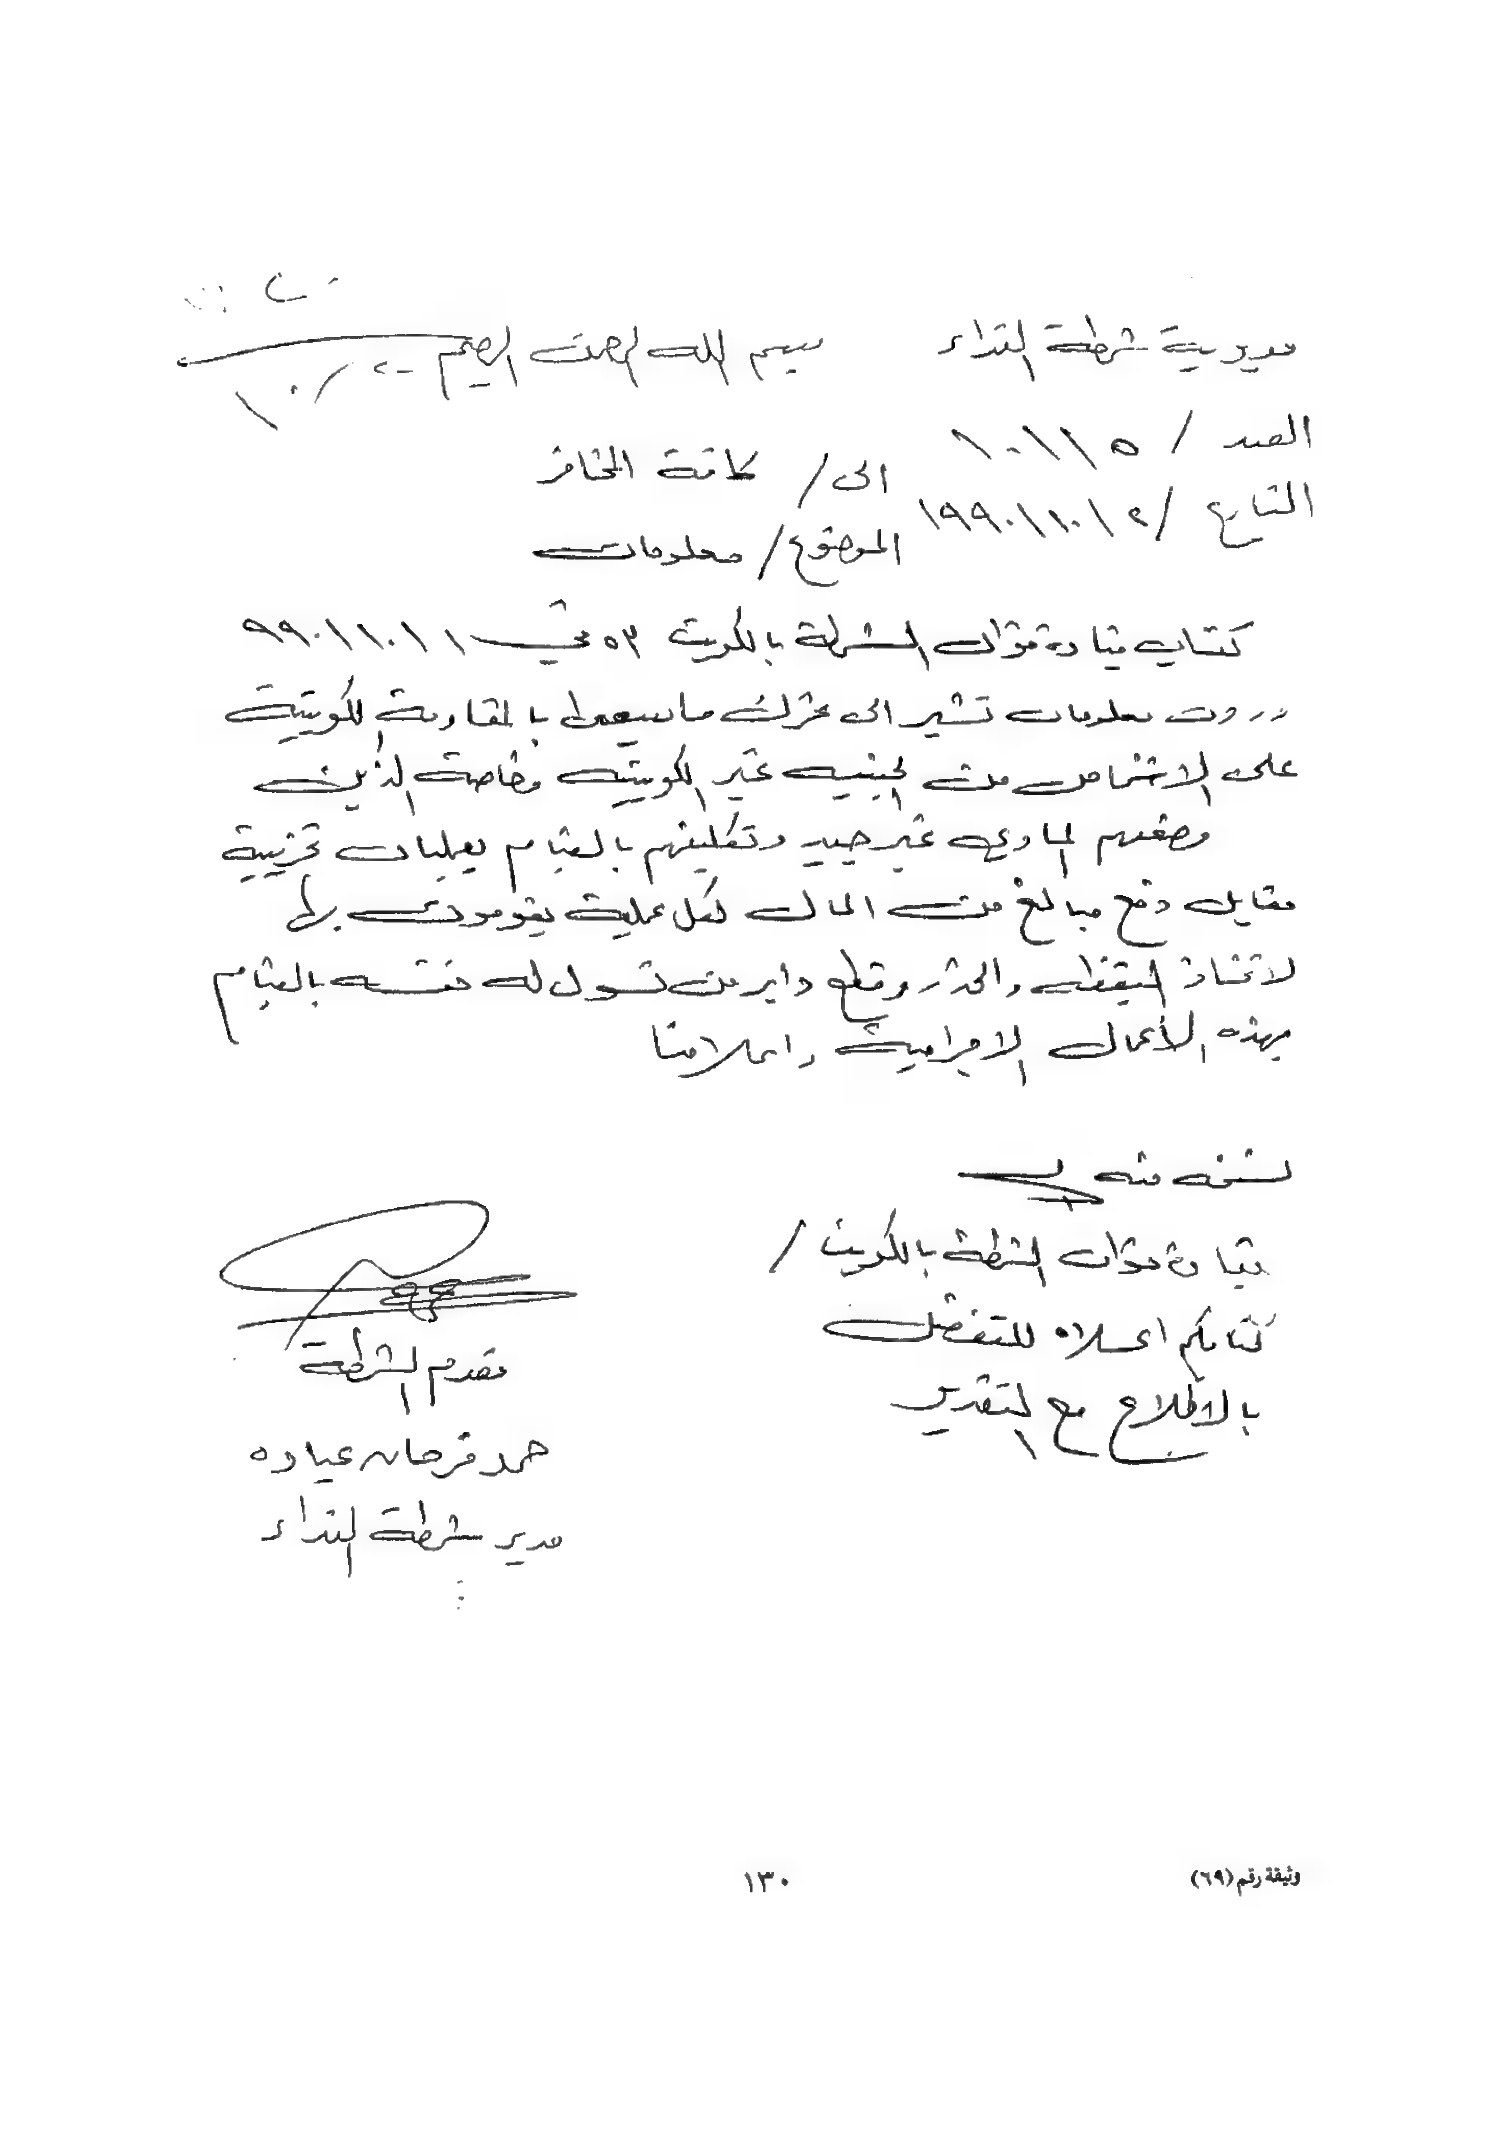 مديرية شرطة النداء
بسم الله الرحمن الرحيم
العدد / ١٠١١٥
التاريخ / ٢ / ١٠ / ١٩٩٠
الى / كافة المخافر
الموضوع / معلومات
كتاب قيادة قوات الشرطة بالكويت ٥٣ في ١ / ١٠ / ٩٩٠
وردت معلومات تشير الى تحرك ما يسمى بالمقاومة الكويتية
على الاشخاص من الجنسيه غير الكويتيه وخاصة الذين
وضعهم المادي غير جيد وتكليفهم بالقيام بعمليات تخريبية
مقابل دفع مبالغ من المال لكل عملية يقومون بها
لاتخاذ اليقظه والحذر وقطع دابر من تسول له نفسه بالقيام
بهذه الأعمال الاجرامية واعلامنا
نسخه منه الى
قيادة قوات الشرطة بالكويت /
كتابكم اعلاه للتفضل
بالاطلاع مع التقدير
مقدم الشرطة
حمد فرحان عياده
مدير شرطة النداء
وثيقة رقم (٦٩)
١٣٠